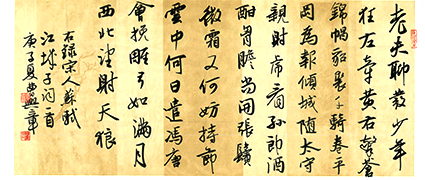 老夫聊發少年
狂左牽黄右擎蒼
錦帽貂裘千騎卷平
岡為報傾城随太守
親射虎看孫郎酒
酣胸膽尚開張鬢
微霜又何妨持節
雲中何日遣馮唐
會挽雕弓如滿月
西北望射天狼
右録宋人蘇軾
江城子詞一首
庚子夏